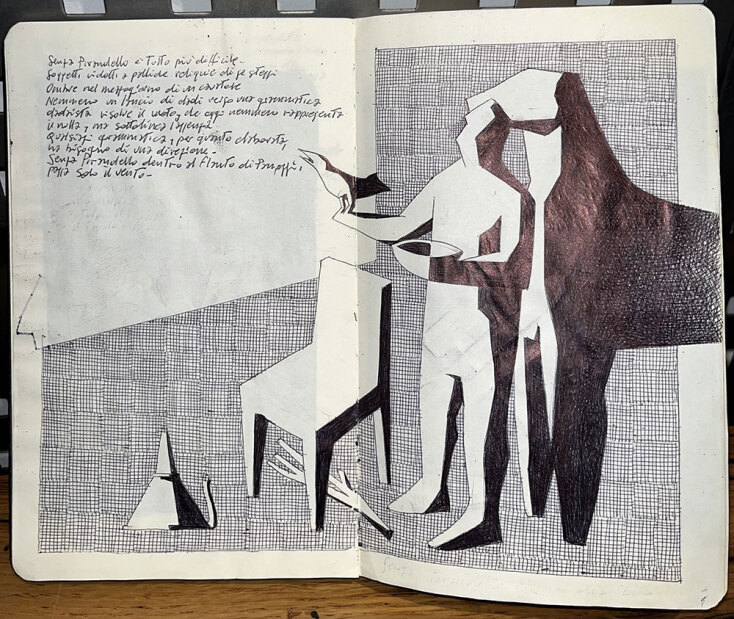 Senza Pirandello è tutto più difficile.
Soggetti ridotti a pallide reliquie di se stessi
Ombre nel mezzogiorno di un
Nemmeno un lancio di dadi verso una grammatica
dadaista risolve il vuoto, che oggi nemmeno rappresenta
il nulla, ma sottolinea l'assenza.
Qualsiasi grammatica, per quanto
ha bisogno di una direzione.
Senza Pirandello dentro al flauto di
passa solo il vento.